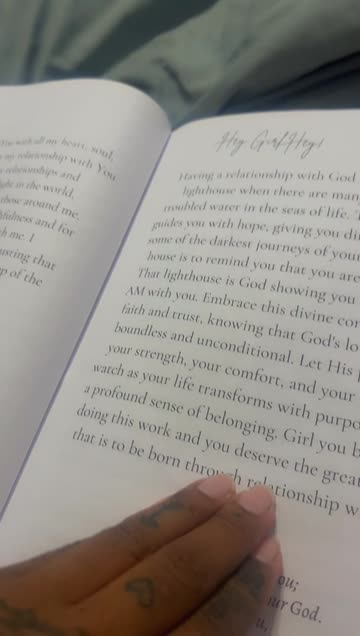 You with all my heart, soul,
my relationship with You
relationships and
light in the world,
those around me.
faithfulness and for
th me. I
usting that
p of the
Hey Girl Hey!
Having a relationship with God
lighthouse when there are man
troubled water in the seas of life.
guides you with hope, giving you di
some of the darkest journeys of your
house is to remind you that you are
That lighthouse is God showing you
AM with you. Embrace this divine co
faith and trust, knowing that God's lo
boundless and unconditional. Let His
your strength, your comfort, and your
watch as your life transforms with purpo
a profound sense of belonging. Girl you b
doing this work and you deserve the great
that is to be born through relationship w
ou;
our God.
u,